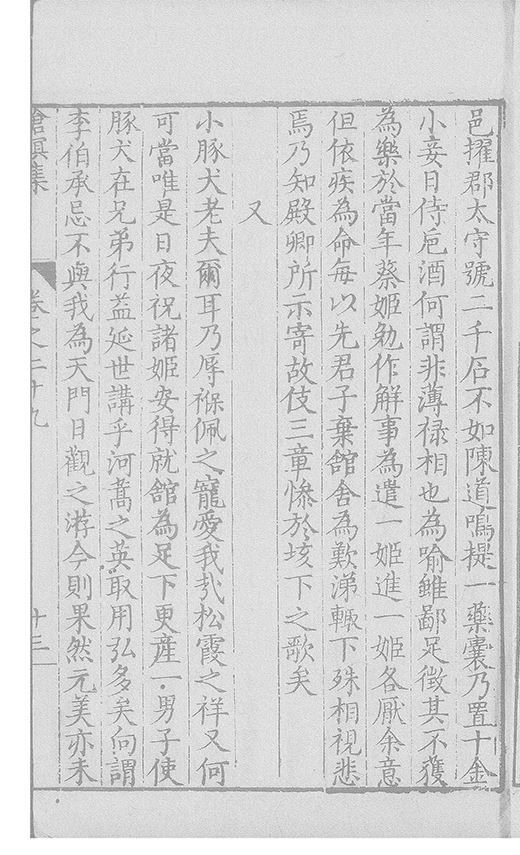 邑擢郡太守號二千石不如陳道鳴提一藥囊乃置十金
小妾日侍巵酒何謂非薄祿相也為喻雖鄙足徵其不獲
為樂於當年蔡姬勉作解事為遣一姬進一姬各厭余意
但依疾為命每以先君子棄館舍為歎涕輙下殊相視悲
焉乃知殿卿所示寄故伎三童慘於垓下之歌矣
又
小豚犬老夫爾耳乃辱褓佩之寵愛我㢤松霞之祥又何
可當唯是日夜祝諸姬安得就舘為足下更産一男子使
豚犬在兄弟行益延世講乎河嵩之英取用弘多矣向謂
李伯承忌不與我為天門日觀之游今則果然元美亦未
滄溟集
卷之二十九
十三